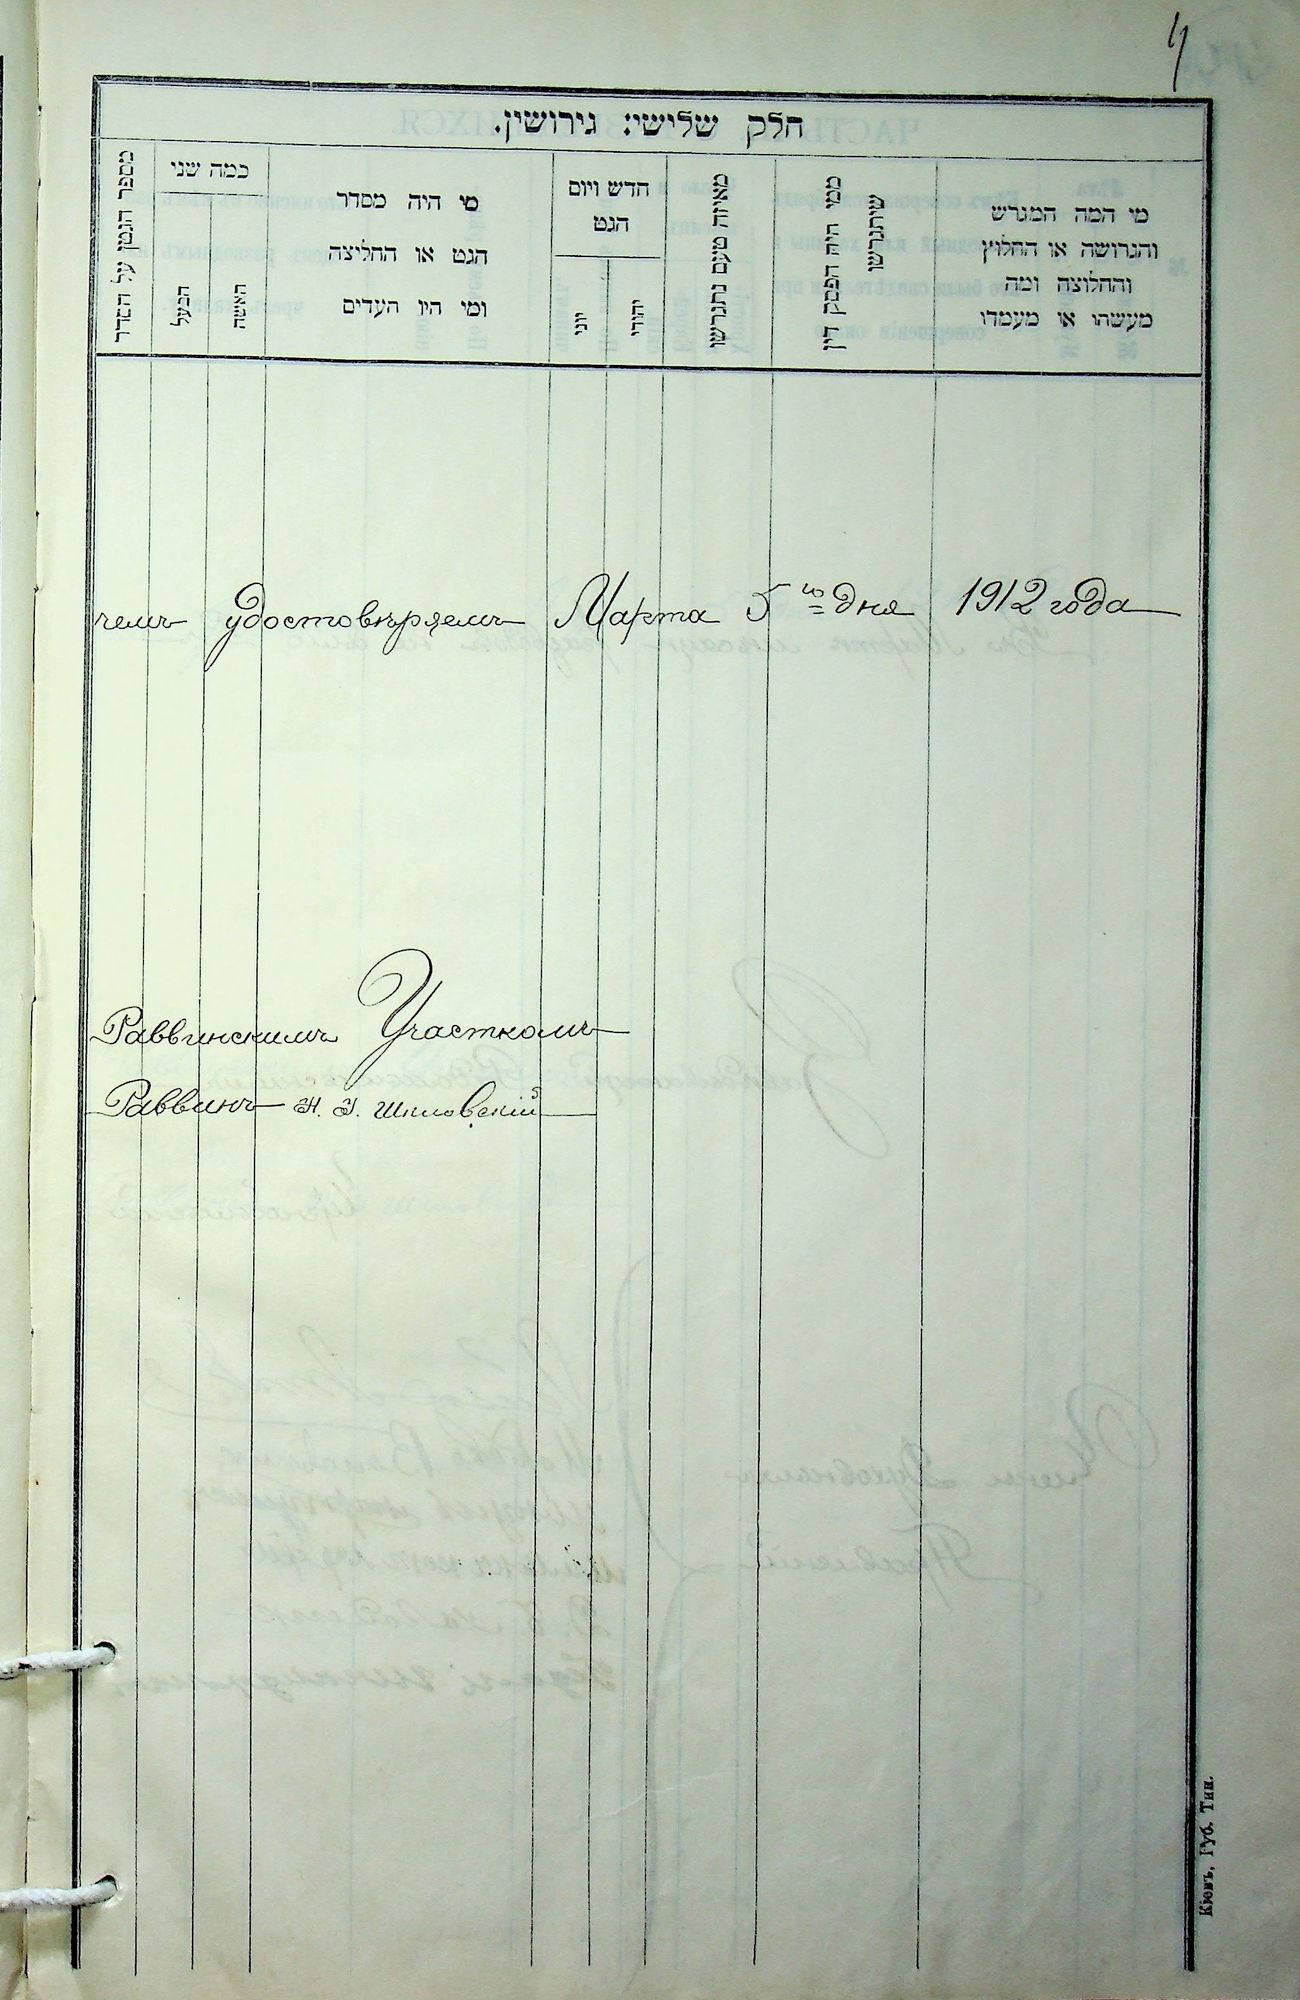 חלק שלישי: גירושין.
מי המה המגרש
והגרושה או החלוץ
והחלוצה ומה
מעשהו או מעמדו
ממי היה הפסק דין
שיתגרשו
מאיזה טעם נתגרשו
חדש ויום
הגט
יהודי
יוני
מי היה מסדר
הגט או החליצה
ומי היו העדים
כמה שני
האשה
הבעל
מספר הגטן על הסדר
чемъ удостовѣряемъ Марта 5го дня 1912 года
Раввинскимъ Участкомъ
Раввинъ Шкловскій
Кіевъ, Губ. Тип.